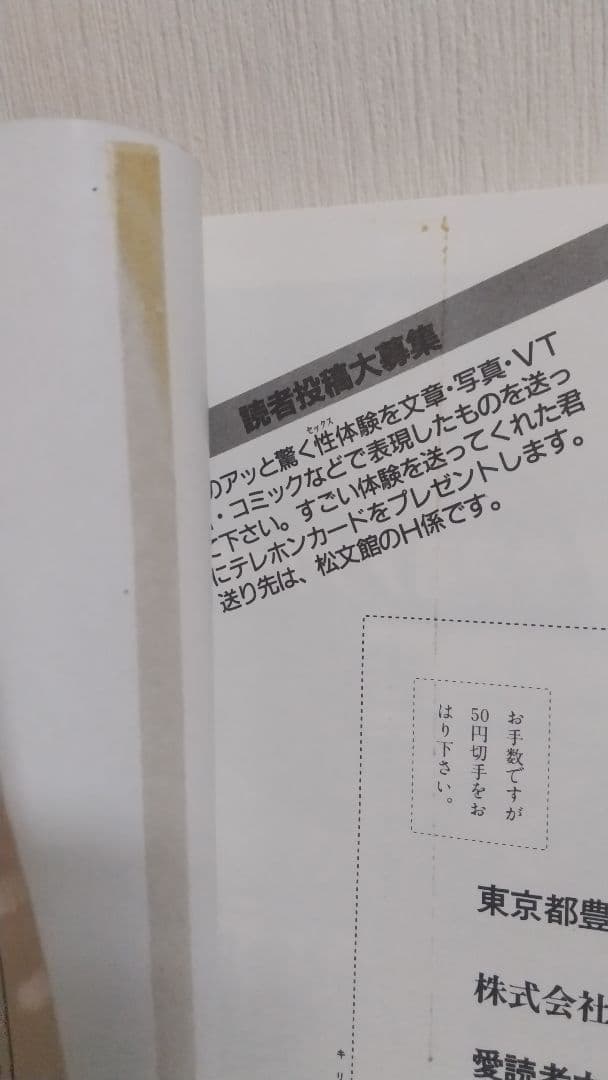 読者投稿大募集
のアッと驚く性体験を文章・写真・VT
セックス
・コミックなどで表現したものを送っ
下さい。すごい体験を送ってくれた君
にテレホンカードをプレゼントします。
送り先は、松文館のH係です。
お手数ですが
50円切手をお
はり下さい。
東京都豊
株式会社
愛読者
キリ